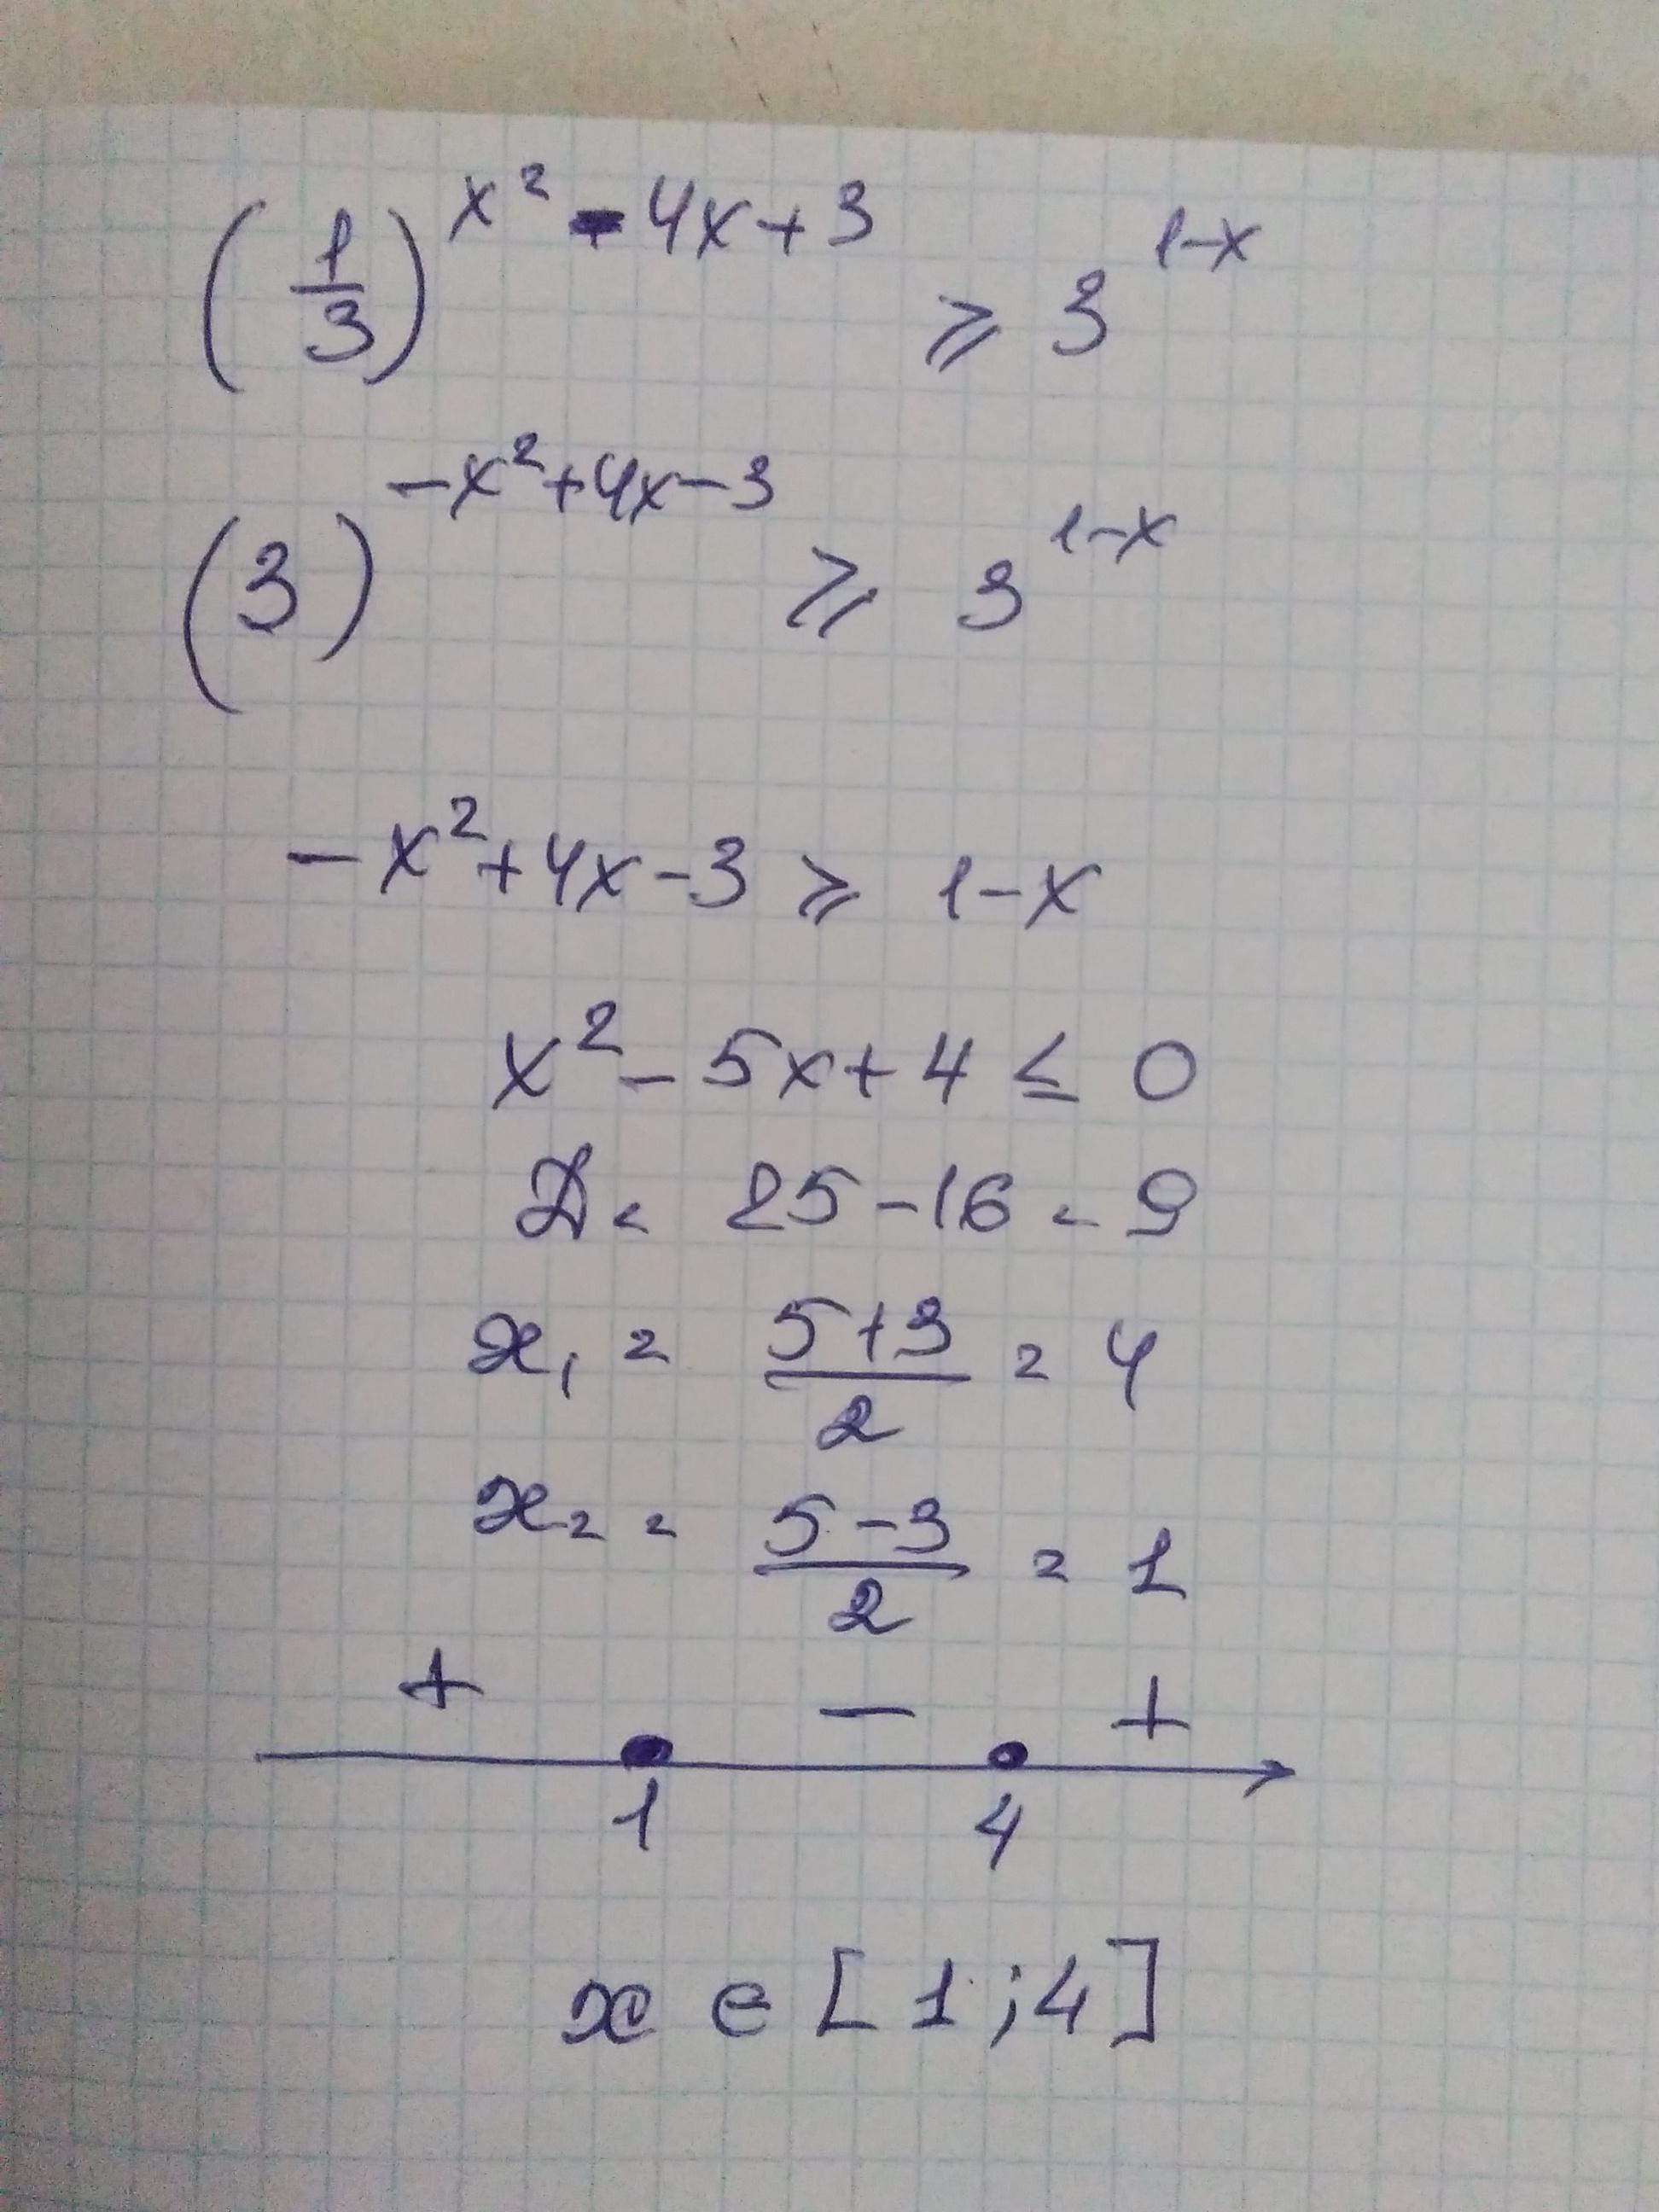 (1/3)^(x² - 4x + 3) ⩾ 3^(1-x)
(3)^(-x² + 4x - 3) ⩾ 3^(1-x)
-x² + 4x - 3 ⩾ 1 - x
x² - 5x + 4 ≤ 0
D = 25 - 16 = 9
x₁ = (5+3)/2 = 4
x₂ = (5-3)/2 = 1
+ − +
1 4
x ∈ [1; 4]